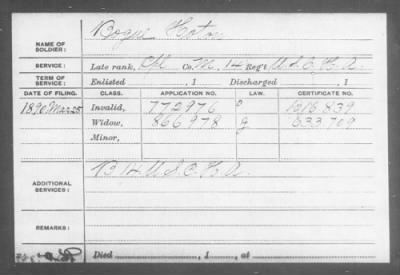 NAME OF SOLDIER: Bogue Hoton
SERVICE: Late rank, Cpl Co. M, 14 Reg't U.S.C.H.A.
TERM OF SERVICE: Enlisted , 1 Discharged , 1
DATE OF FILING. CLASS. APPLICATION NO. LAW. CERTIFICATE NO.
1890 Mar 25 Invalid, 772976
Widow, 866,978 g 633,709
Minor,
ADDITIONAL SERVICES: B 14 U.S.C.H.A.
REMARKS:
Died , 1 , at